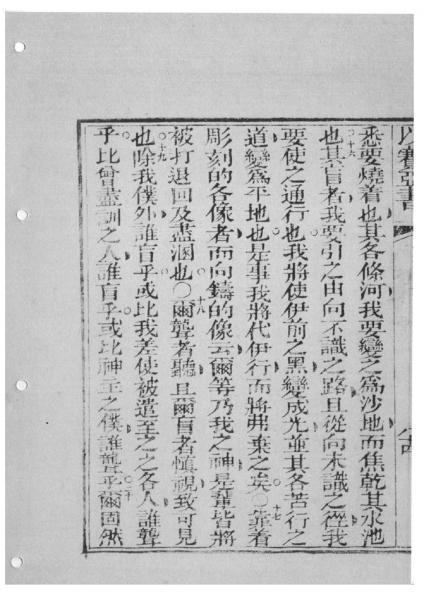 以賽亞書
悉要燒着也其各條河我要變之爲沙地而焦乾其水池
也十六其盲者我要引之由向不識之路且從向未識之徑我
要使之通行也我將使伊前之黑變成光並其各苦行之
道變爲平地也是事我將代伊行而將弗棄之矣○十七靠着
彫刻的各像者而向鑄的像云爾等乃我之神是輩皆將
被打退回及盡溷也○十八爾聾者聽且爾盲者慎視致可見
也十九除我僕外誰盲乎或比我差使被遣至之之各人誰聾
乎比曾盡訓之人誰盲乎或比神主之僕誰聾乎二十爾固然